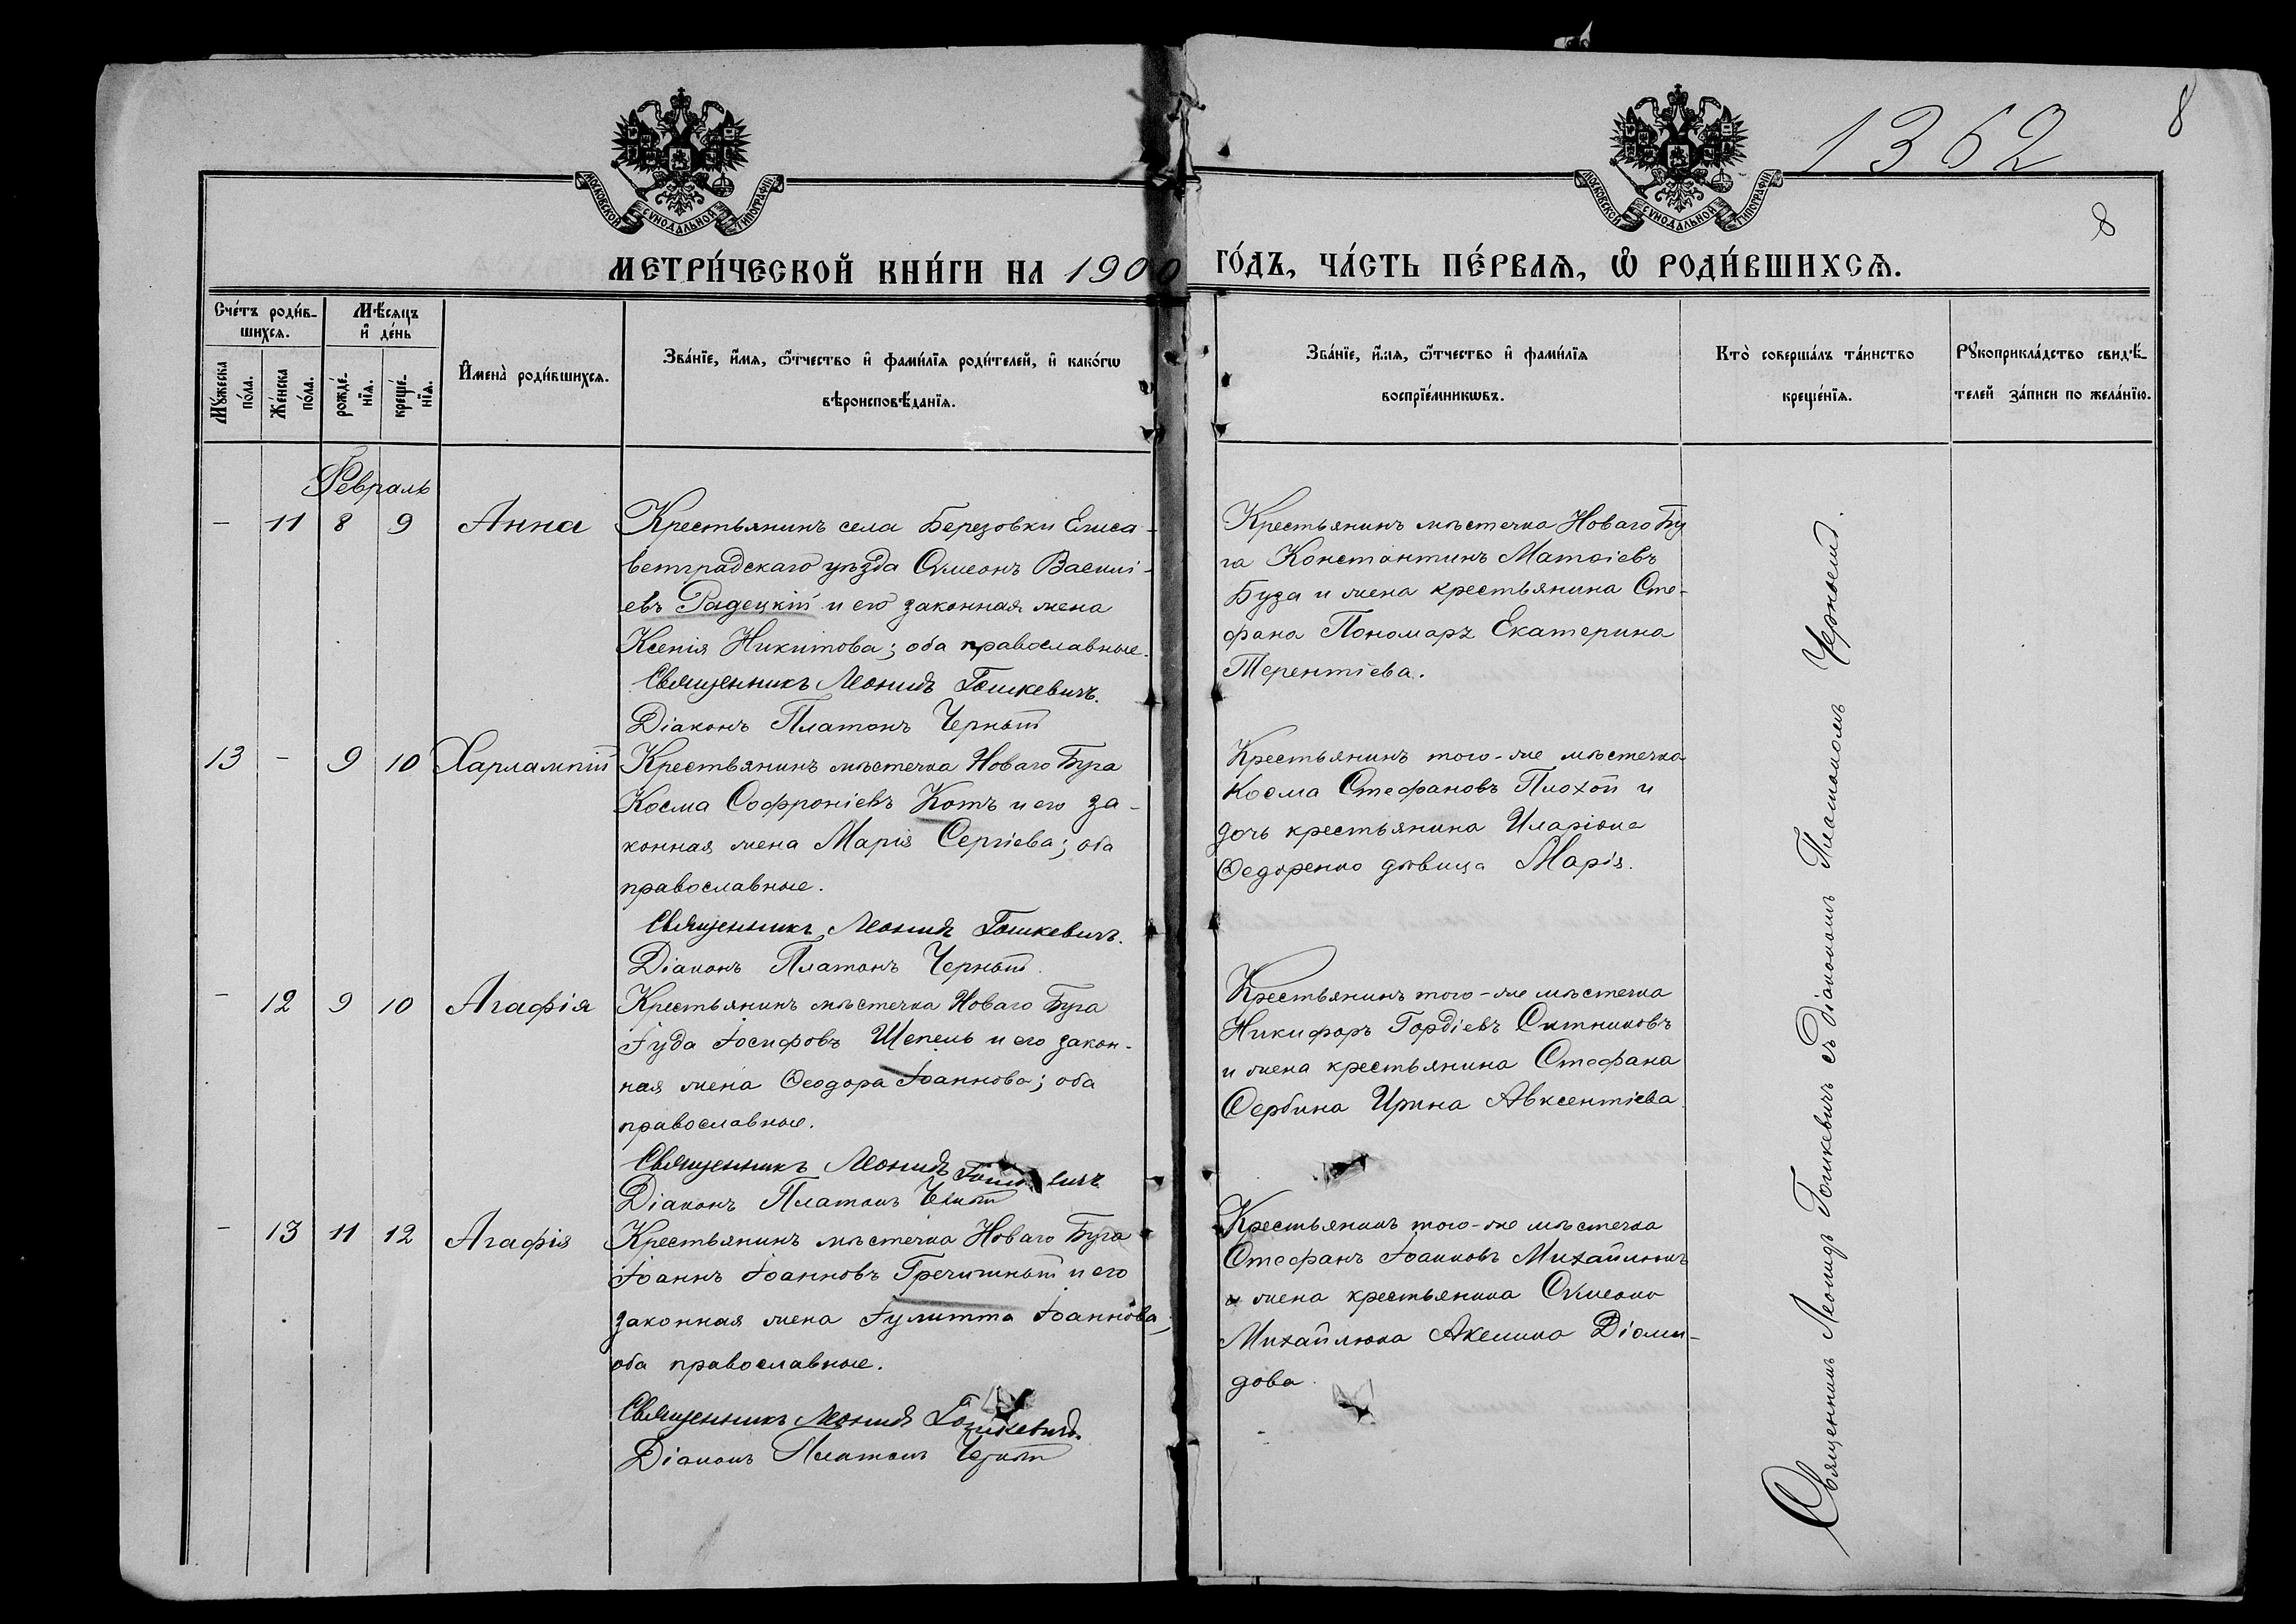 1362
8
8
МОСКОВСКОЙ СѴНОДАЛЬНОЙ ТИПОГРАФІИ
МОСКОВСКОЙ СѴНОДАЛЬНОЙ ТИПОГРАФІИ
МЕТРИ́ЧЕСКОЙ КНИ́ГИ НА 1900 ГО́ДЪ, ЧА́СТЬ ПЕ́РВАѦ, Ѡ҆ РОДИ́ВШИХСѦ.
Сче́тъ роди́в-
шихсѧ.
Мꙋ́жеска
по́ла.
Же́нска
по́ла.
Мѣ́сѧцъ
и҆ де́нь
рожде́-
нїѧ.
креще́-
нїѧ.
И҆мена̀ роди́вшихсѧ.
Зва́нїе, и҆́мѧ, ѻ҆́тчество и҆ фами́лїѧ роди́телей, и҆ како́гѡ
вѣроисповѣ́данїѧ.
Зва́нїе, и҆́мѧ, ѻ҆́тчество и҆ фами́лїѧ
воспрїе́мникѡвъ.
Кто̀ соверша́лъ та́инство
креще́нїѧ.
Рꙋкоприкла́дство свидѣ́-
телей за́писи по жела́нїю.
Февраль
— 11 8 9 Анна
Крестьянинъ села Березовки Елиса-
ветградскаго уѣзда Сѵмеонъ Василі-
евъ Радецкій и его законная жена
Ксенія Никитова; оба православные.
Священникъ Леонидъ Гошкевичъ.
Діаконъ Платонъ Черный
Крестьянинъ мѣстечка Новаго Бу
га Константинъ Матѳіевъ
Буза и жена крестьянина Сте-
фана Пономарь Екатерина
Терентіева.
13 — 9 10 Харлампій
Крестьянинъ мѣстечка Новаго Буга
Косма Софроніевъ Котъ и его за-
конная жена Марія Сергіева; оба
православные.
Священникъ Леонидъ Гошкевичъ.
Діаконъ Платонъ Черный.
Крестьянинъ того-же мѣстечка
Косма Стефановъ Плохой и
дочь крестьянина Иларіона
Ѳедоренко дѣвица Марія.
— 12 9 10 Агафія
Крестьянинъ мѣстечка Новаго Буга
Іуда Іосифовъ Шепель и его закон-
ная жена Ѳеодора Іоаннова; оба
православные.
Священникъ Леонидъ Гошкевичъ
Діаконъ Платонъ Черный
Крестьянинъ того-же мѣстечка
Никифоръ Гордіевъ Ситниковъ
и жена крестьянина Стефана
Сербина Ирина Авксентіева
— 13 11 12 Агафія
Крестьянинъ мѣстечка Новаго Буга
Іоаннъ Іоанновъ Гречишный и его
законная жена Іулитта Іоаннова;
оба православные.
Священникъ Леонидъ Гошкевичъ.
Діаконъ Платонъ Черный
Крестьянинъ того-же мѣстечка
Стефанъ Іоанновъ Михайлюкъ
и жена крестьянина Сѵмеона
Михайлюка Акилина Діоми-
дова.
Священникъ Леонидъ Гошкевичъ съ діакономъ Платономъ Чернымъ.